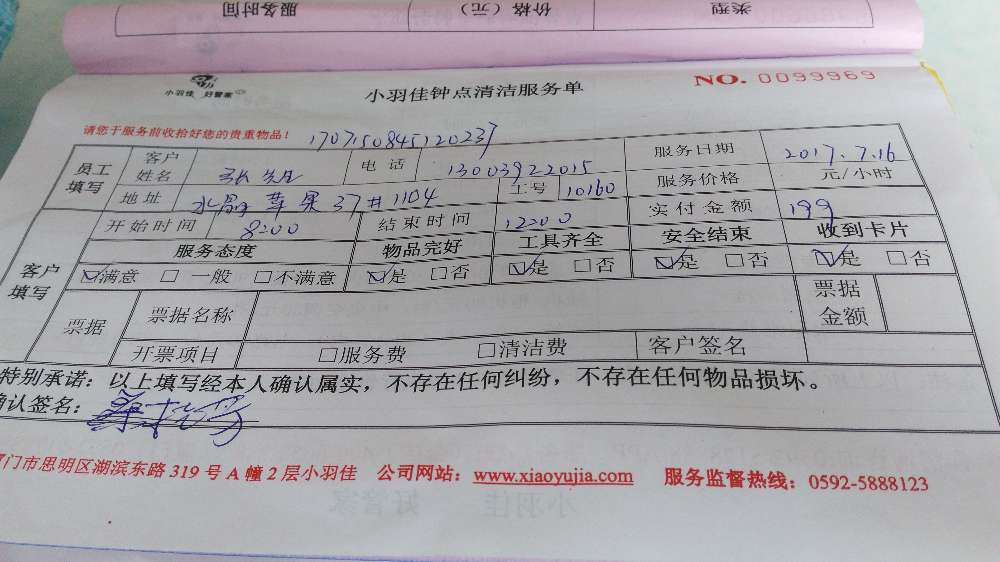 类型 价格（元） 服务时间
小羽佳 好管家
小羽佳钟点清洁服务单
NO. 0099969
请您于服务前收拾好您的贵重物品！
170715084512023
员工填写 客户姓名 电话 13003922015 服务日期 2017.7.16
地址 水晶苹果37#1104 工号 10160 服务价格 元/小时
客户填写 开始时间 8:00 结束时间 12:00 实付金额 199
服务态度 物品完好 工具齐全 安全结束 收到卡片
☑满意 □一般 □不满意 ☑是 □否 ☑是 □否 ☑是 □否 ☑是 □否
票据 票据名称 票据金额
开票项目 □服务费 □清洁费 客户签名
特别承诺：以上填写经本人确认属实，不存在任何纠纷，不存在任何物品损坏。
确认签名：
门市思明区湖滨东路 319 号 A 幢 2 层小羽佳 公司网站：www.xiaoyujia.com 服务监督热线：0592-5888123
小羽佳 好管家